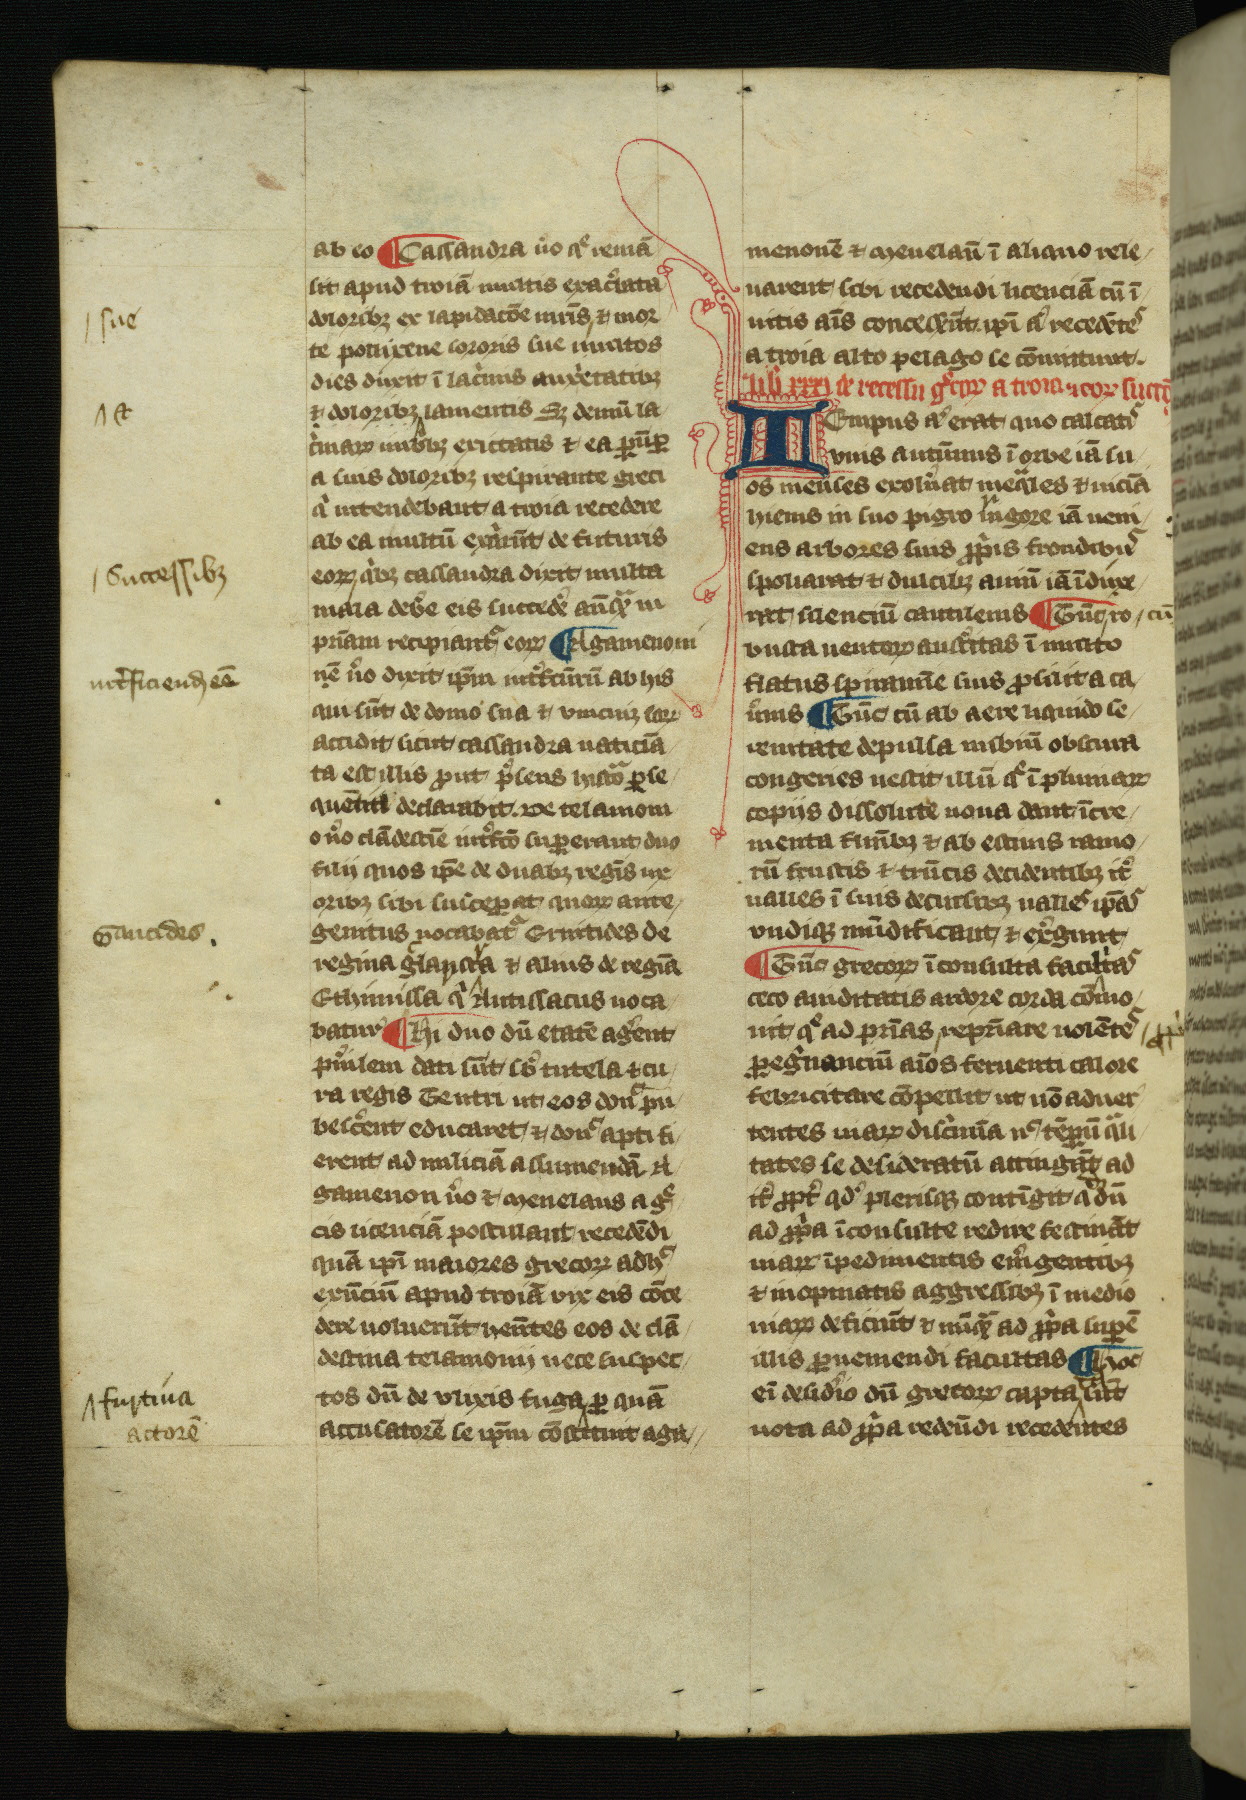 ab eo ¶ Cassandra ůo q̄ remā
sit apud troiā multis exac̓bata
doloribꝫ ex lapidacōe mr̄is / ⁊ mor
te polixene sororis sue multos
dies duxit ī lac̓mis anxietatibꝫ
⁊ doloribꝫ lamentis Sꝫ demū la
c̓maꝝ imb̓bꝫ exiccatis ⁊ ea ꝑūꝑ
a suis doloribꝫ respirante greci
q̓ intendebant a troia recedere
ab ea multū exq̓rūt de futuris
eoꝝ q̓bꝫ cassandra dixit multa
mala deb̓e eis succedē anq̄ in
pr̄iam recipiantʳ eoꝝ ¶ Agamenoni
nē ůo dixit ip̄m int̓ficiūrū ab his
qui sūt de domo sua ⁊ vnicuiqꝫ
accidit sicut cassandra naticia
ta est illis ꝓut p̄sens hystoᵃ ꝑse
quēter declarabit. De telamoni
o ůo clādestīe int̓fcō suꝑerant duo
filii quos ip̄e de duabꝫ regīs ux
oribꝫ sibi susceꝑat quoꝝ ante
genitus vocabatʳ Ermides de
regina glausta ⁊ alius de regīa
Ethimissa q̓ Antissacus uoca
batur ¶ Hi duo dū etatē ag̓ent
pu̓ilem dati sūt sb̓ tutela ⁊ cu
ra regis Tentri ut eos donᶜ pu
besc̓ent educaret ⁊ donᶜ apti fi
erent ad miliciā assumendā A
gamenon ůo ⁊ Menelaus a g̓
cis licenciā postulant recedēdi
quā ip̄i maiores grecoꝝ adhᶜ
exn̄ciū apud troiā vix eis cōce
dere uoluerūt hentes eos de clā
destina telamonii nece suspec
tos dū de vlixis fuga ꝑ quā
accusatorē se ip̄m cōstituit aga
/ sue
/\ ⁊
/ Successibꝫ
int̓ficiendꝫ eē
Gaucides .
/\ furtiua
actorē
menonē ⁊ Menelaū ī aliquo rele
uarent sibi recedendi licenciā cū ī
uitis aīs concess̓ūt ip̄i aͥ recedētes
a troia alto pelago se cōmittunt.
lib̓ xxxi de recessu g̓coꝝ a troia ⁊ eoꝝ succū
Tempus aͥ erat quo calcatis
vuis autūmus ī orbe iā su
os menses exoluat meq̄les ⁊ uiciā
hiems in suo pigro frigore iā ueni
ens arbores suis ꝓpis frondibus
spoliarat ⁊ dulcibꝫ auiū iā īduxe
rat silenciū cantilenis ¶ Tūc ro / cū
busta uentoꝝ aust̓itas ī multo
flatus spiramīe suis ꝓsilit a ca
u̓nis ¶ Tūc cū ab aere liquido se
renitate depulsa nubiū obscura
congeries uestit illū q̄ ī pluuiaꝝ
copiis dissolute noua dant īcre
menta flumībꝫ ⁊ ab estiuis ramo
rū frustis ⁊ trūcis decidentibꝫ it̓
ualles ī suis decursibꝫ ualles ip̄as
vndiqꝫ mūdificant ⁊ exp̓gunt
¶ Tūc grecoꝝ īconsulta facultas
ceco auiditatis ardore corda cōmo
uit q̄ ad pr̄ias / repr̄iare uolētes / ꝓp̓
ꝑeg̓nanciū aīos feruenti calore
febricitare cōpellit ut nō aduer
tentes uiaꝝ disc̓mīa nᶜ tēpuū q̄li
tates se desideratū attingāt ad
it̓ ꝓpt̓ qd̓ plerisqꝫ contīgit q̓ dū
ad ꝓpa īconsulte redire festināt
uiaꝝ īpedimentis em̓gentibꝫ
⁊ inopinatis aggressibꝫ ī medio
uiaꝝ deficiūt ⁊ nūq̄ ad ꝓpa suꝑē
illis ꝑueniendi facultas ¶ Hoc
eī desid̓io dū grecoꝝ capta sūt
uota ad ꝓp̓a redeūdi recedentes